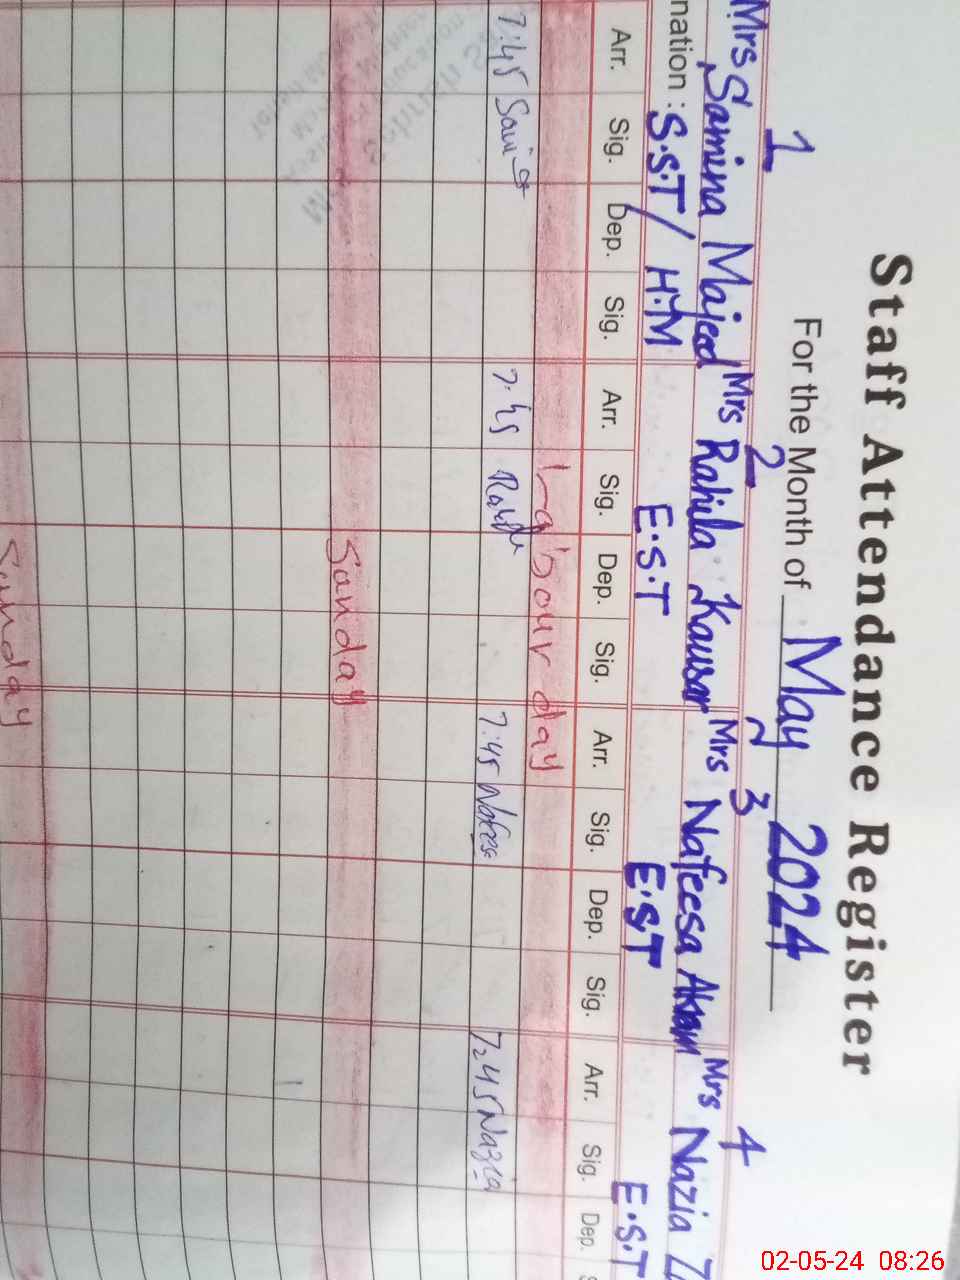 Staff Attendance Register
For the Month of May 2024
1 2 3 4
Mrs Samina Majeed Mrs Rahila Kausar Mrs Nafeesa Akram Mrs Nazia
nation : S.S.T / H.M E.S.T E.S.T E.S.T
Arr. Sig. Dep. Sig. Arr. Sig. Dep. Sig. Arr. Sig. Dep. Sig. Arr. Sig. Dep.
Labour day
7:45 7:45 7:45 Nafeesa 7:45 Nazia
Sunday
Sunday
02-05-24 08:26